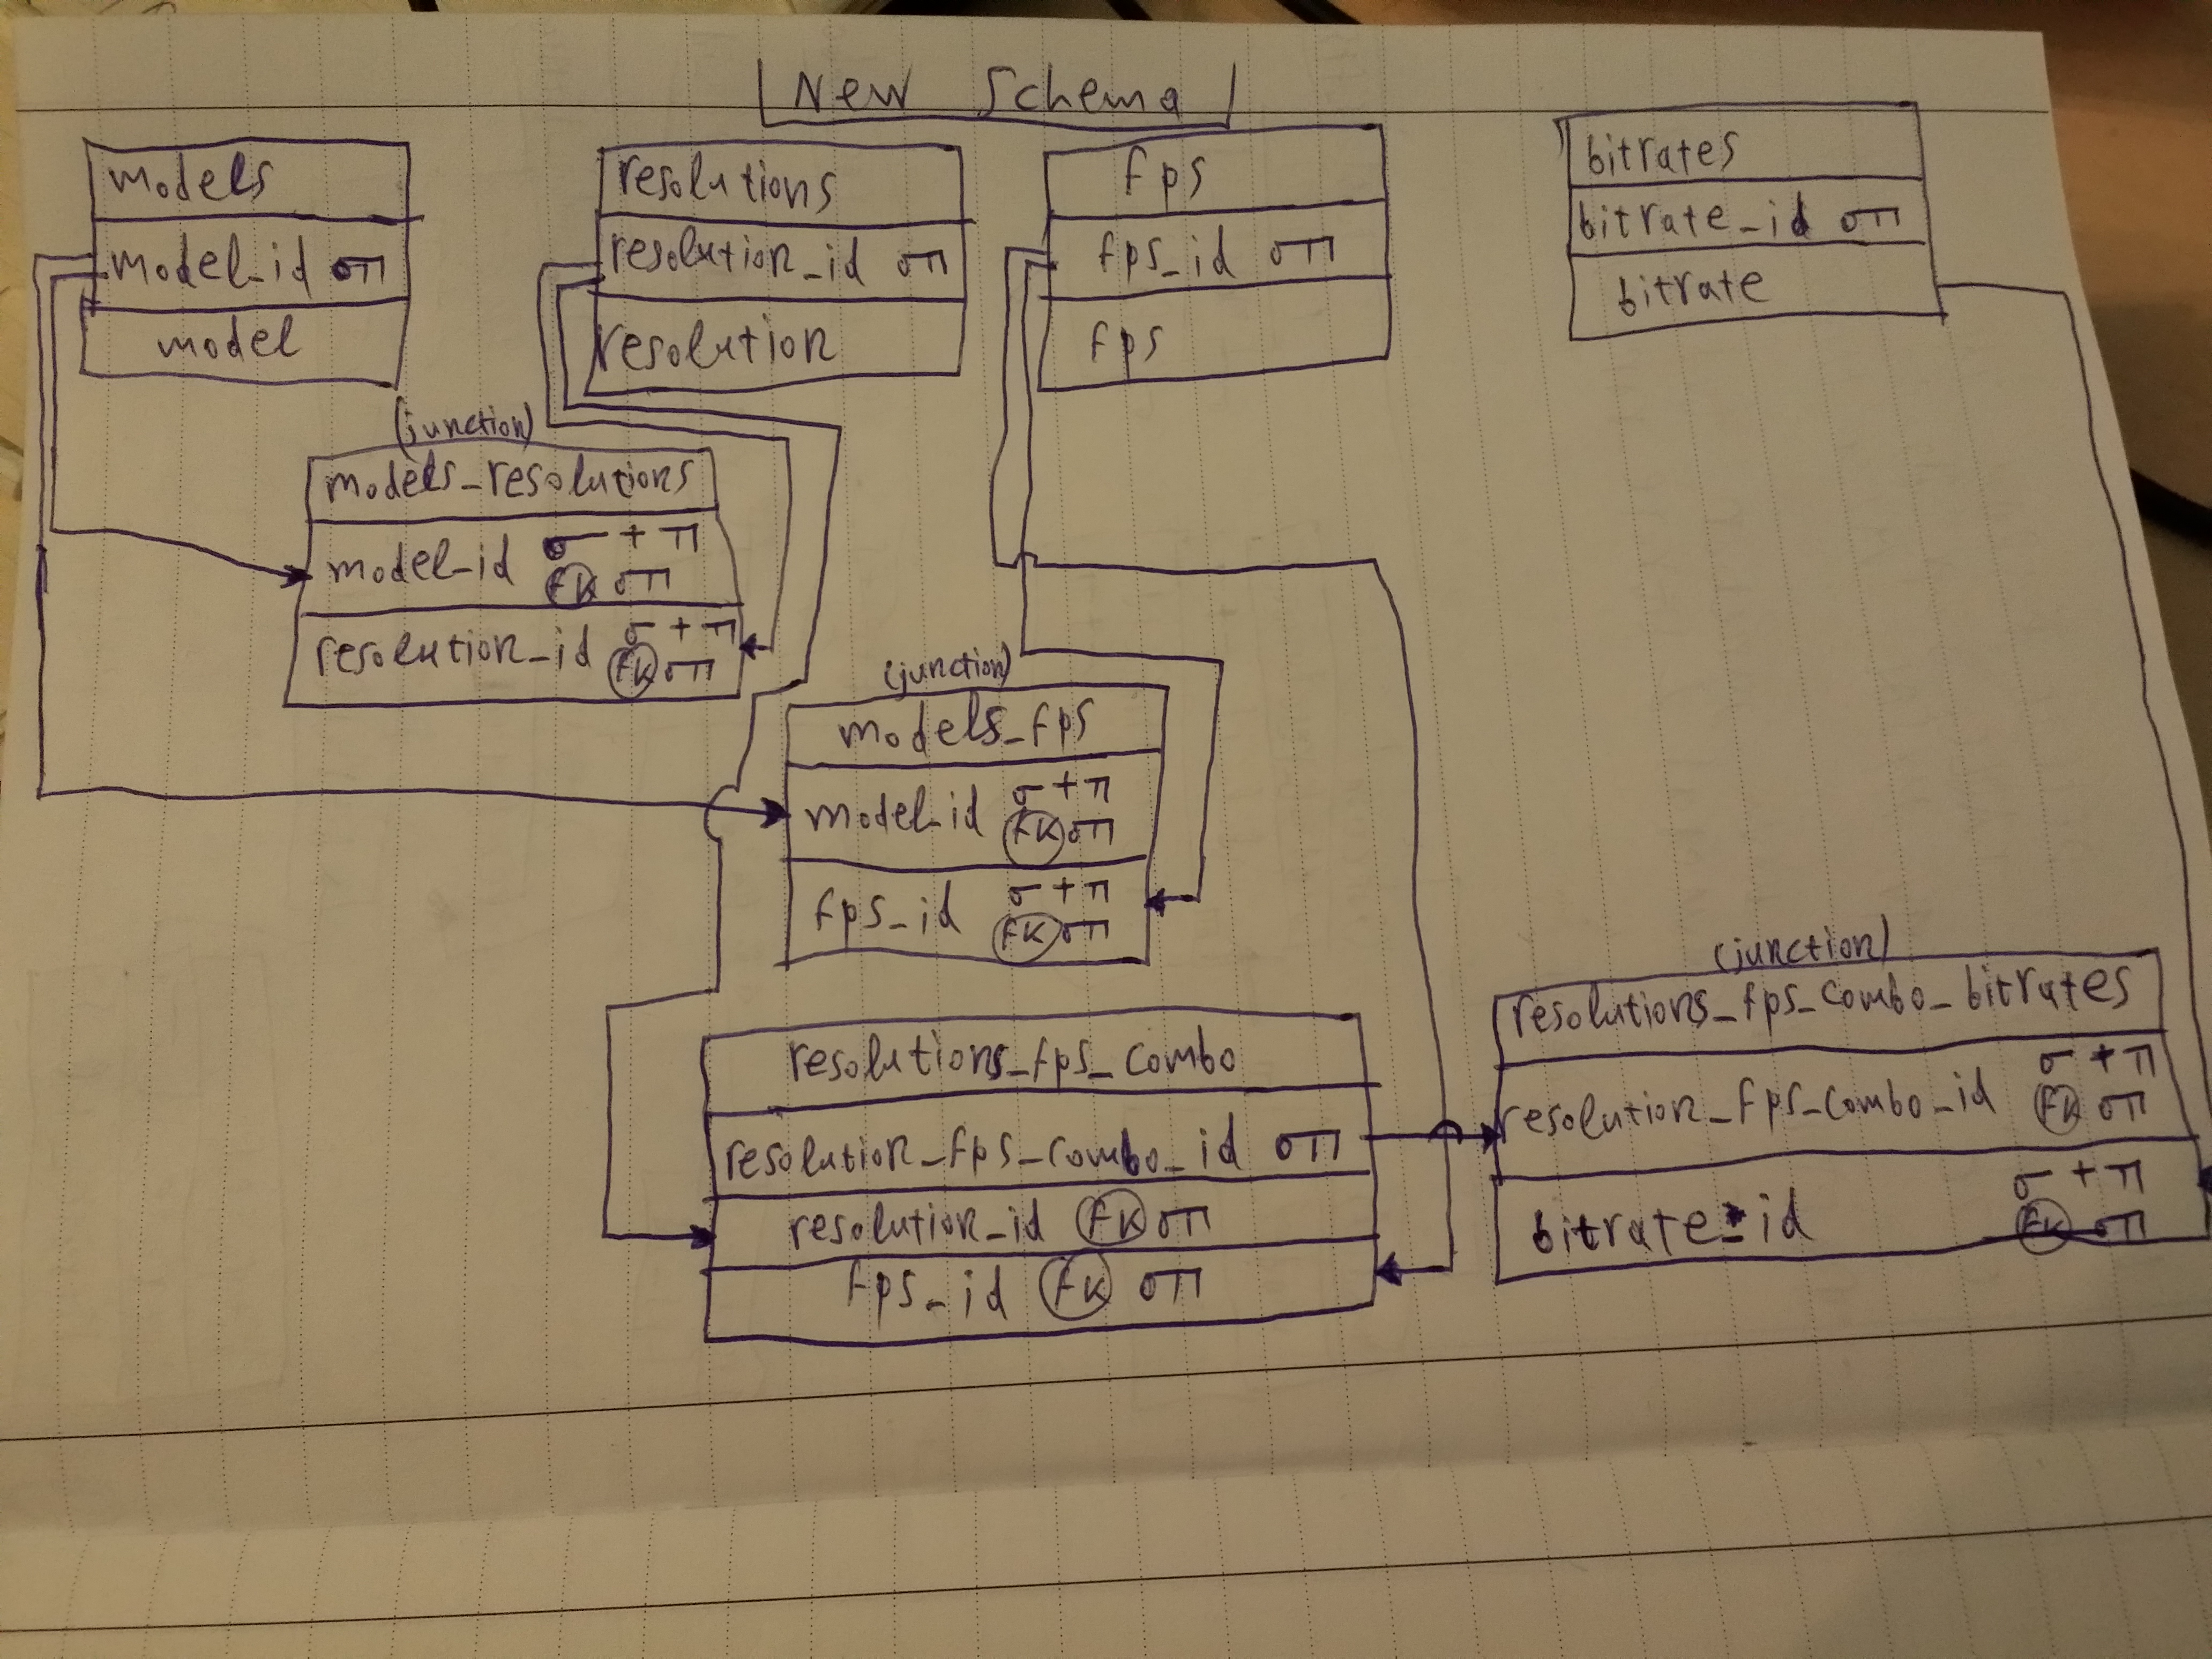 New Schema
models
model_id
model
resolutions
resolution_id
resolution
fps
fps_id
fps
bitrates
bitrate_id
bitrate
(junction)
models_resolutions
model_id +
FK
resolution_id +
FK
(junction)
models_fps
model_id +
FK
fps_id +
FK
resolutions_fps_combo
resolution_fps_combo_id
resolution_id FK
fps_id FK
(junction)
resolutions_fps_combo_bitrates
resolution_fps_combo_id +
FK
bitrate_id +
FK